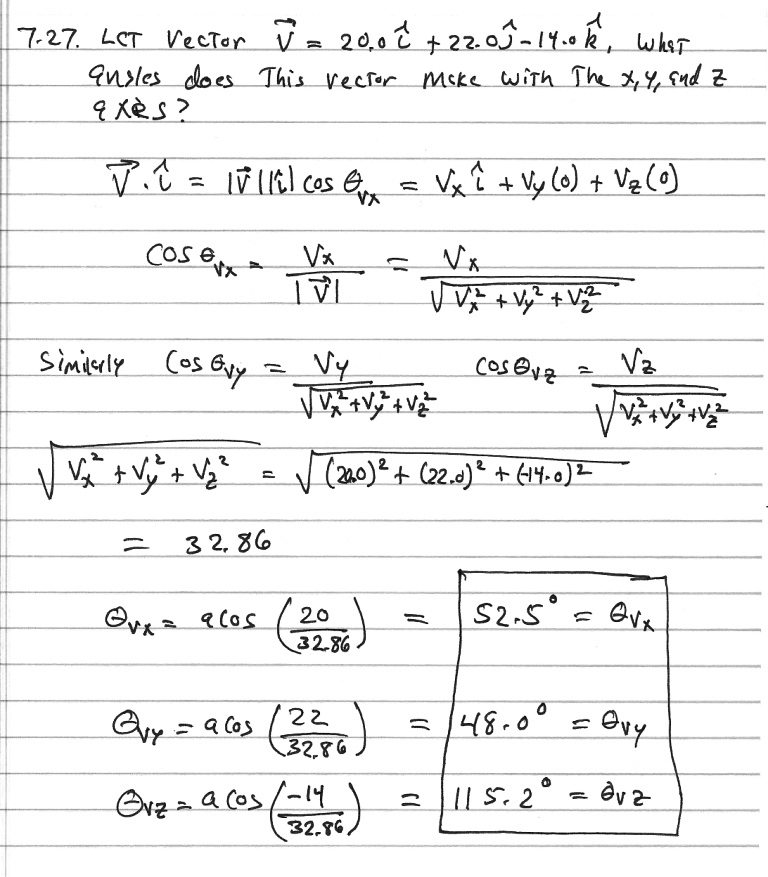 7.27. Let Vector V⃗ = 20.0 î + 22.0 ĵ - 14.0 k̂, What
angles does This vector make with The x, y, and z
axes?
V⃗ · î = |V⃗||î| cos θ_vx = Vx î + Vy (0) + Vz (0)
cos θ_vx = Vx / |V⃗| = Vx / √(Vx² + Vy² + Vz²)
Similarly cos θ_vy = Vy / √(Vx² + Vy² + Vz²) cos θ_vz = Vz / √(Vx² + Vy² + Vz²)
√(Vx² + Vy² + Vz²) = √((20.0)² + (22.0)² + (-14.0)²)
= 32.86
θ_vx = acos (20 / 32.86) = 52.5° = θ_vx
θ_vy = acos (22 / 32.86) = 48.0° = θ_vy
θ_vz = acos (-14 / 32.86) = 115.2° = θ_vz